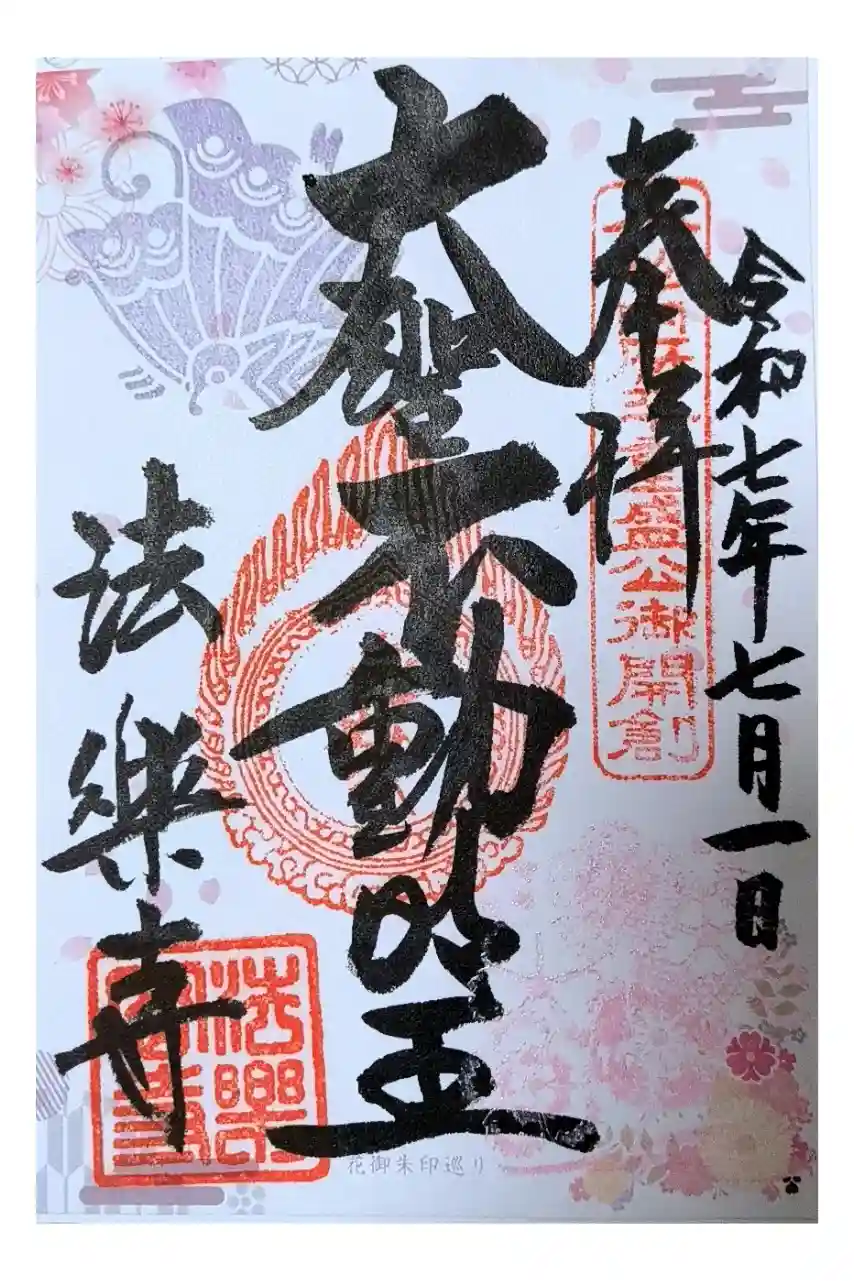 令和七年七月一日
奉拝
盛公御開創
大聖不動明王
法樂寺
法樂
花御朱印巡り